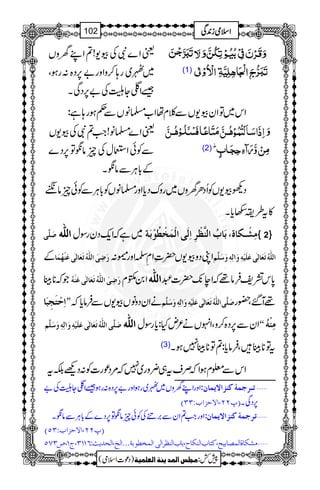 102 اسلامی زندگی
وَقَرْنَ فِیْ بُیُوْتِكُنَّ وَ لَا تَبَرَّجْنَ
تَبَرُّجَ الْجَاهِلِیَّةِ الْاُوْلٰى (1) یعنی اے نبی کی بیویو! تم اپنے گھروں
میں ٹھہری رہا کرو اور بے پردہ نہ رہو،
جیسے اگلی جاہلیت کی بے پردگی۔
اس میں تو ان بیویوں سے کلام تھا اب مسلمانوں سے حکم ہو رہا ہے:
وَ اِذَا سَاَلْتُمُوْهُنَّ مَتَاعًا فَسْــٴَـلُوْهُنَّ
مِنْ وَّرَآءِ حِجَابٍ (2) یعنی اے مسلمانو! جب تم نبی کی بیویوں
سے کوئی استعمال کی چیز مانگو تو پردے
کے باہر سے مانگو۔
دیکھو بیویوں کو اُدھر گھروں میں روک دیا اور مسلمانوں کو باہر سے کوئی چیز مانگنے
کا یہ طریقہ سکھایا۔
{2} مشکاۃ، بَابُ النَّظْرِ اِلَی الْمَخْطُوْبَة میں ہے کہ ایک دن رسول اللہ صَلَّی
اللہُ تَعَالٰی عَلَیْہِ وَاٰلِہٖ وَسَلَّم اپنی دو بیویوں حضرت ام سلمہ اور میمونہ رَضِیَ اللہُ تَعَالٰی عَنْہُمَا کے
پاس تشریف فرما تھے کہ اچانک حضرت عبد اللہ ابن ام مکتوم رَضِیَ اللہُ تَعَالٰی عَنْہُ جو کہ نابینا
تھے آگئے حضور صَلَّی اللہُ تَعَالٰی عَلَیْہِ وَاٰلِہٖ وَسَلَّم نے ان دونوں بیویوں سے فرمایا کہ ”اِحْتَجِبَا
مِنْهُ“ ان سے پردہ کرو، انہوں نے عرض کیا: یا رسول اللہ صَلَّی اللہُ تَعَالٰی عَلَیْہِ وَاٰلِہٖ وَسَلَّم
یہ تو نابینا ہیں، فرمایا: تم تو نابینا نہیں ہو۔ (3)
اس سے معلوم ہوا کہ صرف یہ ہی ضروری نہیں کہ مرد عورت کو نہ دیکھے بلکہ یہ
ترجمۂ کنز الایمان: اور اپنے گھروں میں ٹھہری رہو اور بے پردہ نہ رہو جیسے اگلی جاہلیت کی بے
پردگی۔ (پ۲۲، الاحزاب: ۳۳)
ترجمۂ کنز الایمان: اور جب تم ان سے برتنے کی کوئی چیز مانگو تو پردے کے باہر سے مانگو۔
(پ۲۲، الاحزاب: ۵۳)
مشکاۃ المصابیح، کتاب النکاح، باب النظر الی المخطوبة...الخ، الحدیث: ۳۱۱۶، ج۱، ص۵۷۳
پیش کش: مجلس المدینة العلمیة (دعوت اسلامی)